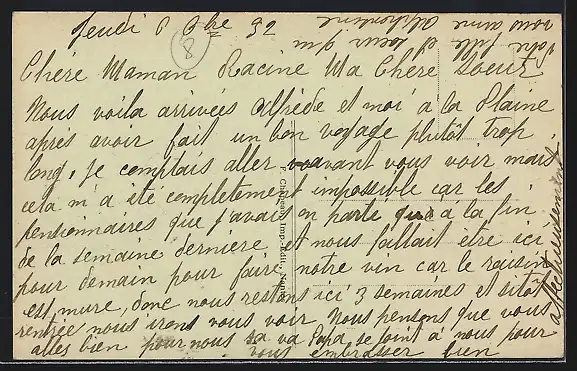 Jeudi 6 8bre 32
8
Chère Maman Racine Ma Chère Soeur
Nous voila arrivées Alfrède et moi à la Plaine
après avoir fait un bon voyage plutôt trop
long, je comptais aller avant vous voir mais
cela m'a été completement impossible car les
pensionnaires que j'avais en parte à la fin
de la semaine derniere et nous fallait etre ici
pour demain pour faire notre vin car le raisin
est mure, donc nous restons ici 3 semaines et sitot
rentrée nous irons vous voir Nous pensons que vous
alles bien pour nous sa va Papa se joint à nous pour
vous embrasser bien
affectueusement
Votre fille et soeur qui
vous aime
F. Chapeau, Imp.-Edit., Nantes